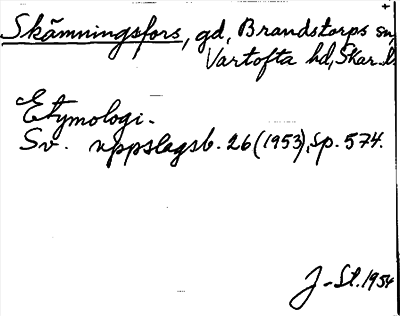 Skämningsfors, gd, Brandstorps sn,
Vartofta hd, Skar. l.
Etymologi.
Sv. uppslagsb. 26 (1953), sp. 574.
J-St. 1954